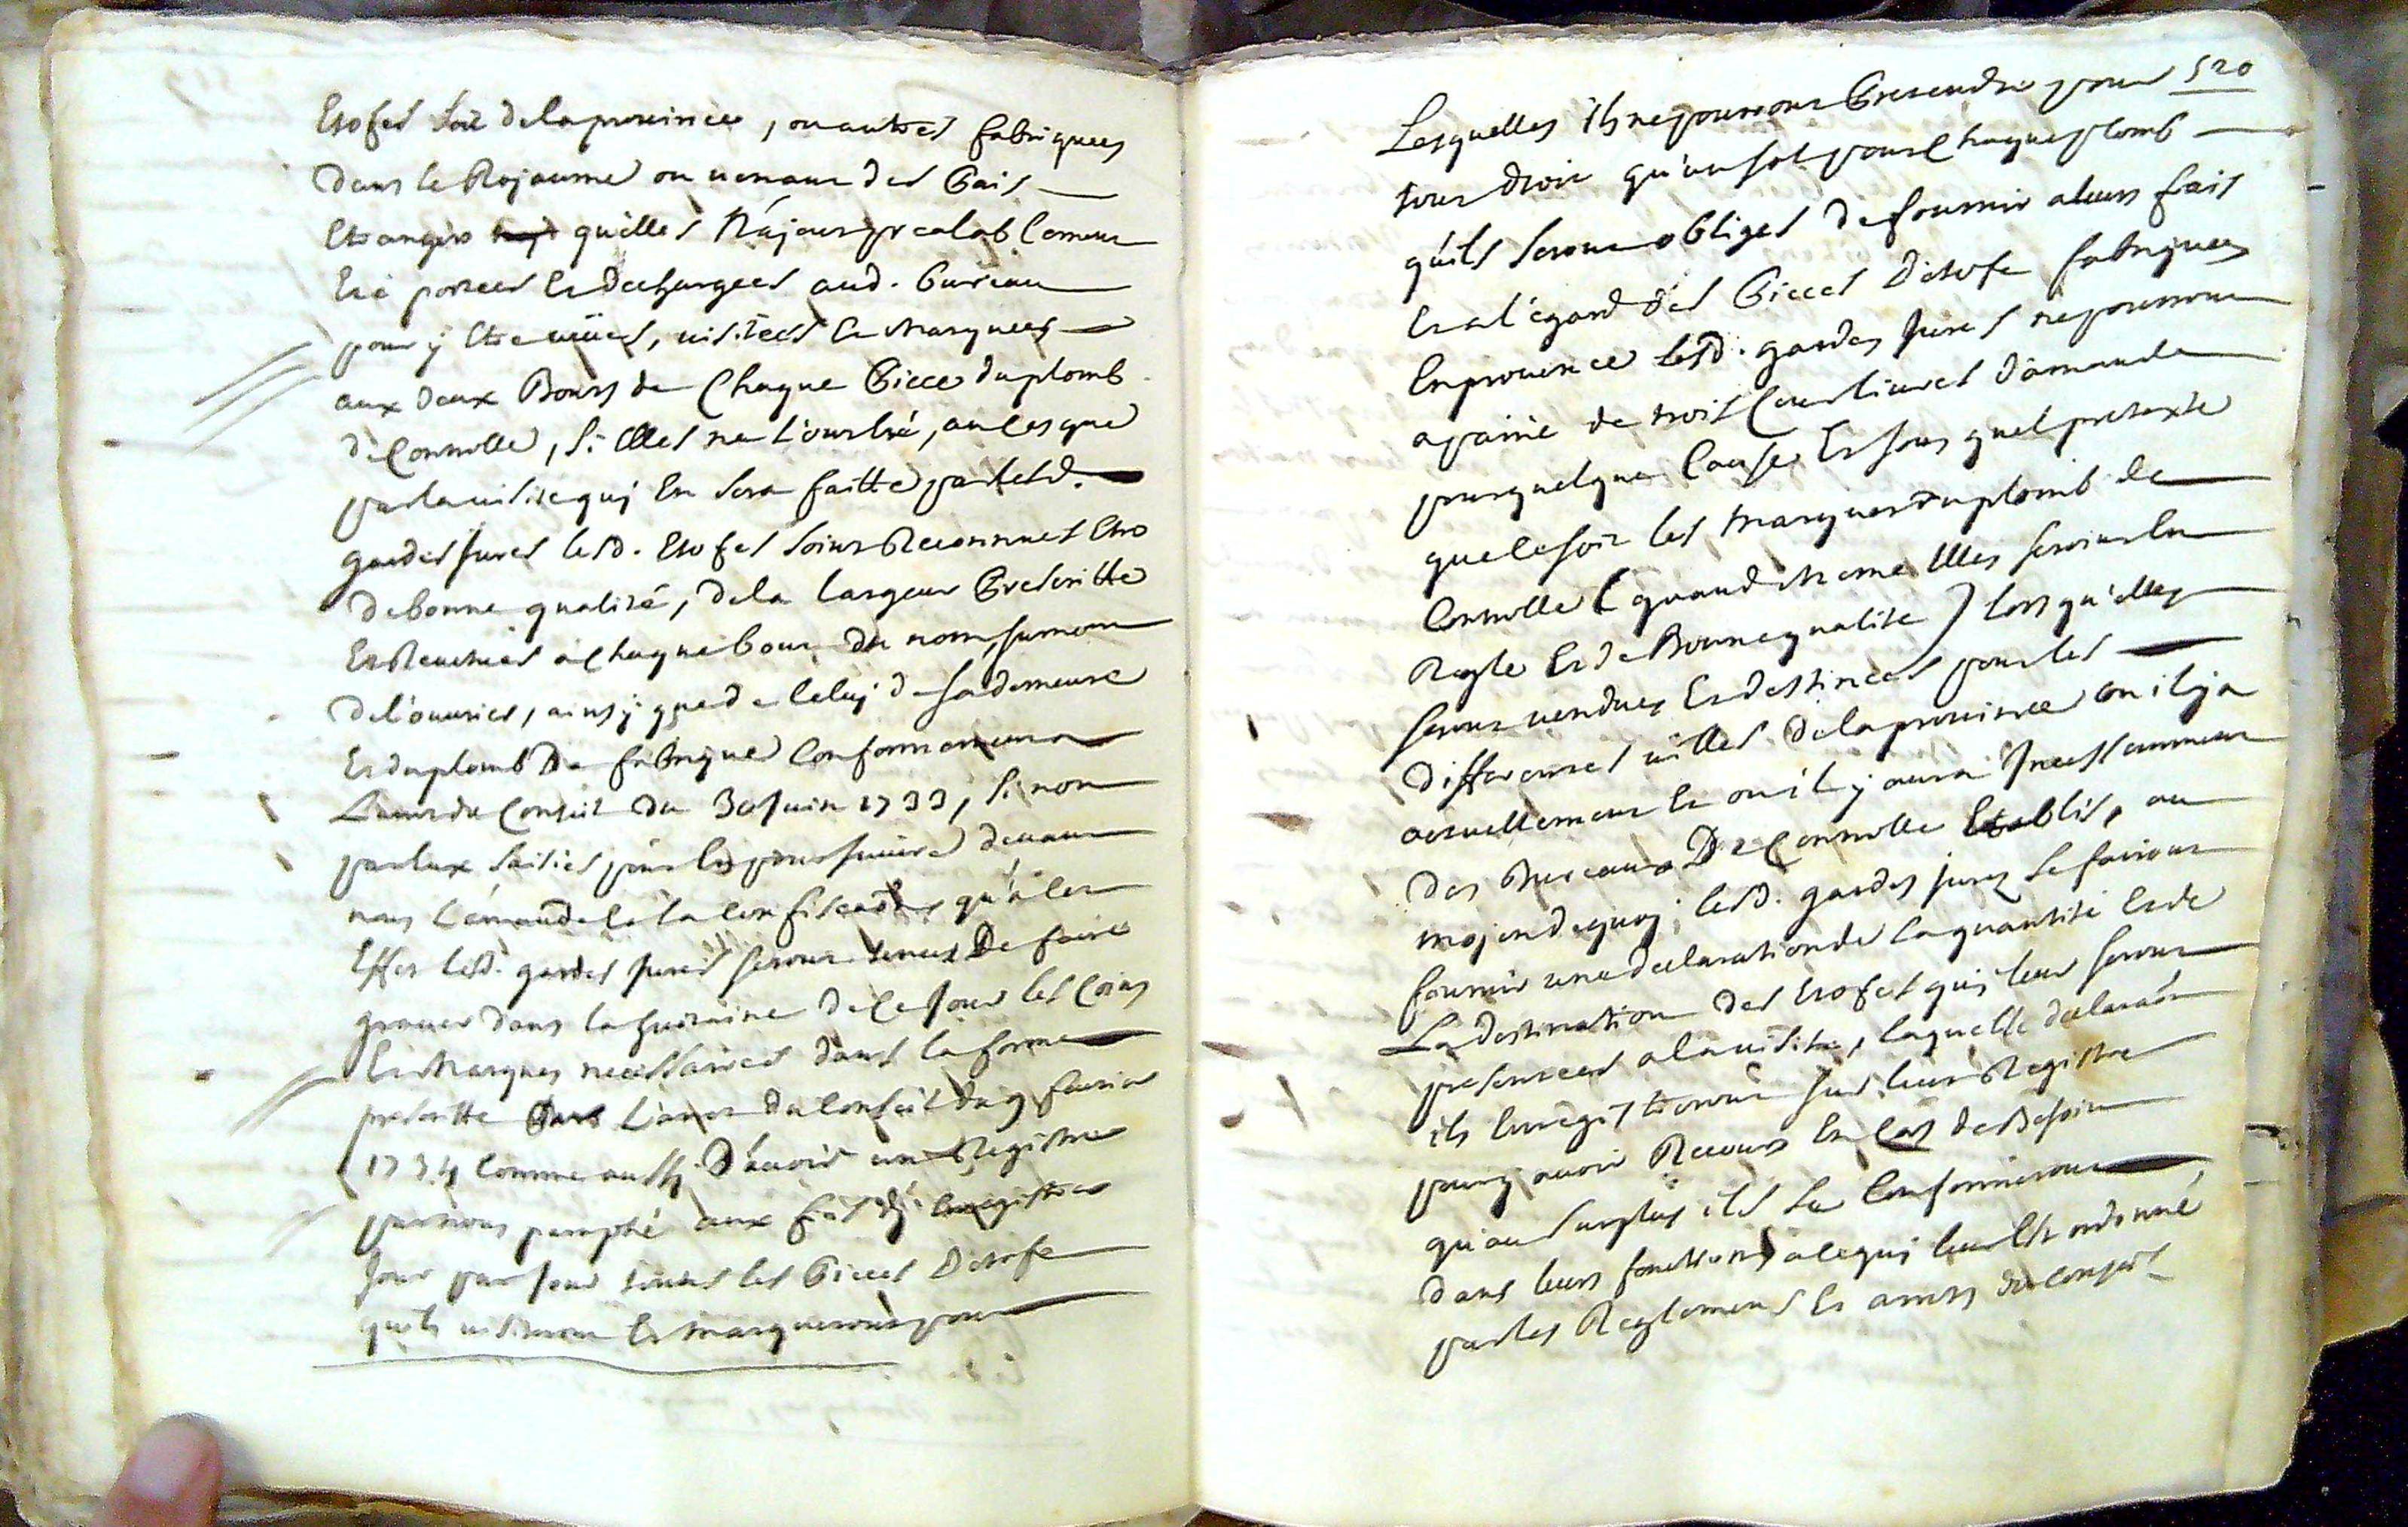 Etofes soit de la province, ou autres fabriquées
dans le Royaume ou venant des Païs
Etrangers qu'elles n'ajent prealablement
Eté portées Et dechargées aud. Bureau
pour ÿ Etre vüües, visitées Et Marquées
aux deux Bouts de Chaque Piece du plomb
de Controlle, si Elles ne l'ont Eté, au cas que
par la visite quj En sera faitte par lesd.
gardes Jurés lesd. Etofes soint Reconnues Etre
de bonne qualité, de la largeur Prescritte
Et Revetües a Chaque bout du nom, surnom
de l'ouvrier, ainsj que de Celuj de sa demeure
Et du plomb De fabrique Conformement a
L'arret du Conseil du 30 Juin 1733, si non
par Eux saisies pour En poursuivre devant
nous L'amande Et la Confiscaõn, qu'a Cet
Effet lesd. gardes Jurés seront tenus De faire
graver dans la huitaine de Ce Jour les Coins
Et Marques necessaires dans la forme
prescritte Dans L'arret du Conseil du 9 favrier
1734 Comme aussj D'avoir un Registre
par nous paraphé aux fins d'j Enregistrer
Jour par Jour toutes les Pieces D'etofe
qu'ils visiteront Et marqueront pour
520
Lesquelles ils ne pourront Pretendre pour
tout droit qu'un sol pour Chaque plomb
qu'ils seront obligés de fournir a leurs frais
Et a l'egard des Pieces D'etofe fabriquées
En provence lesd. gardes Jurés ne pourront
a paine de trois Cent livres d'amande
pour quelque Cause Et sous quel pretexte
que Ce soit les Marquer du plomb de
Controlle (quand Meme Elles seroint En
Regle Et de Bonne qualité) lors qu'elles
seront vendues Et destinées pour les
differentes villes de la province ou il ÿ a
actuellement Et ou il ÿ aura Incessamment
des Bureaux De Controlle Etablis, au
mojen dequoj, lesd. gardes Jurés se fairont
fournir une declaration de la quantité Et de
La destination des Etofes quj leur seront
presentées a la visite, laquelle declaraõn
ils Enregistreront sur leur Registre
pour ÿ avoir Recours En Cas de Besoin
qu'au surplus ils se Conformeront
dans leurs fonctions a Ce quj leur Est ordonné
par les Reglemens Et arrets du Conseil